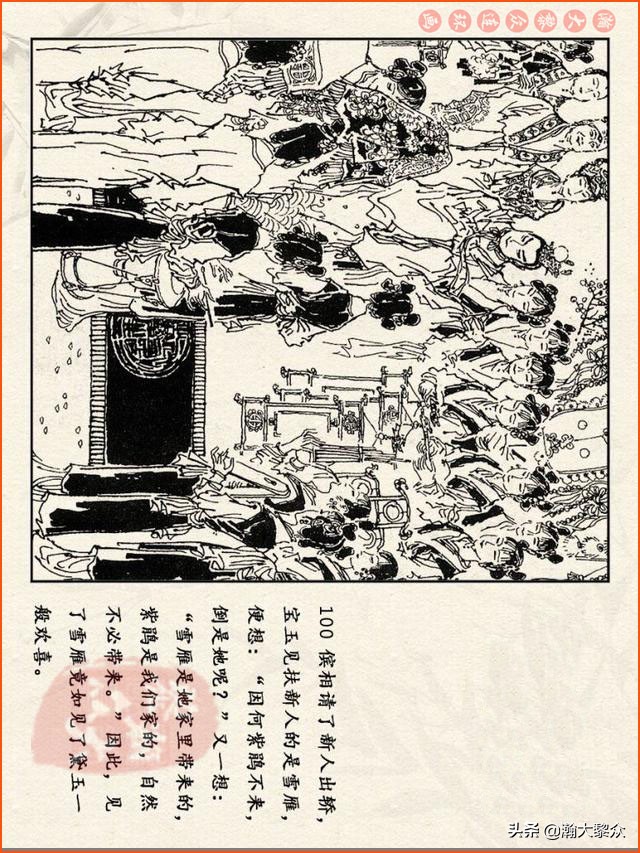 瀚大黎众连环画
100 傧相请了新人出轿，
宝玉见扶新人的是雪雁，
便想：“因何紫鹃不来，
倒是她呢？”又一想：
“雪雁是她家里带来的，
紫鹃是我们家的，自然
不必带来。”因此，见
了雪雁竟如见了黛玉一
般欢喜。
头条 @瀚大黎众